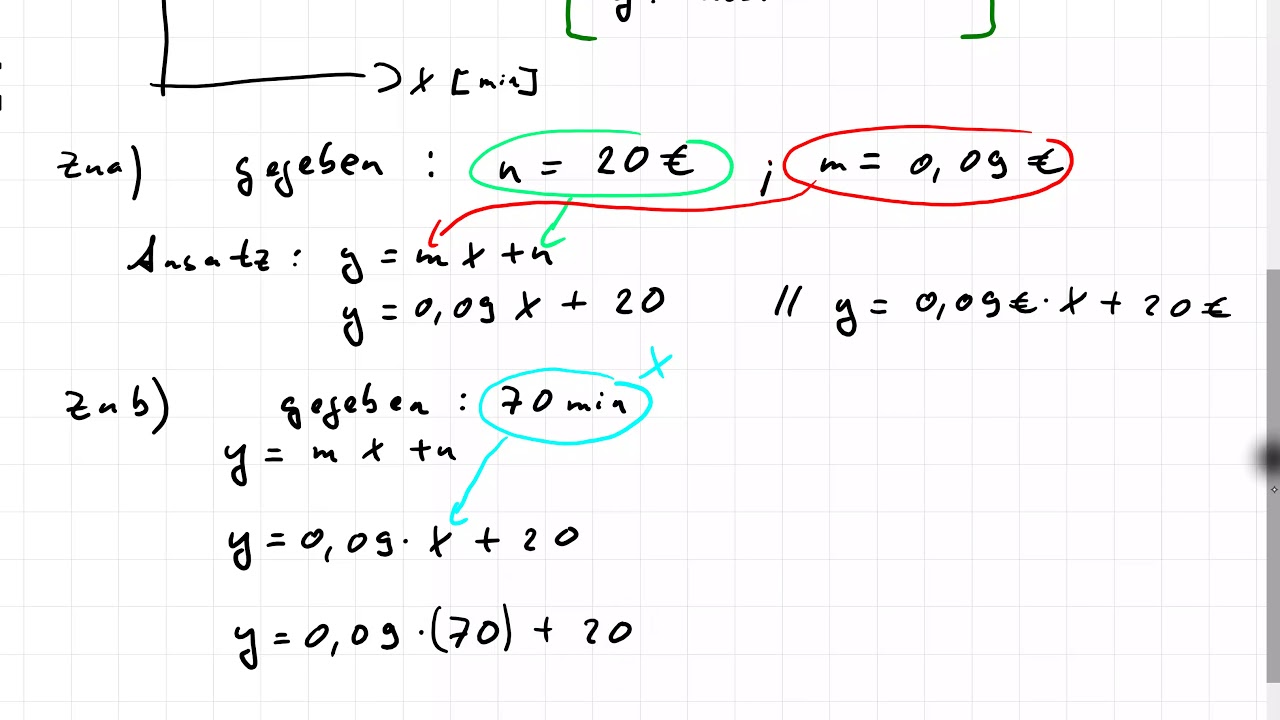 x [min]
Zu a) gegeben : n = 20 € ; m = 0,09 €
Ansatz : y = m x + n
y = 0,09 x + 20 // y = 0,09 € · x + 20 €
x
Zu b) gegeben : 70 min
y = m x + n
y = 0,09 · x + 20
y = 0,09 · (70) + 20